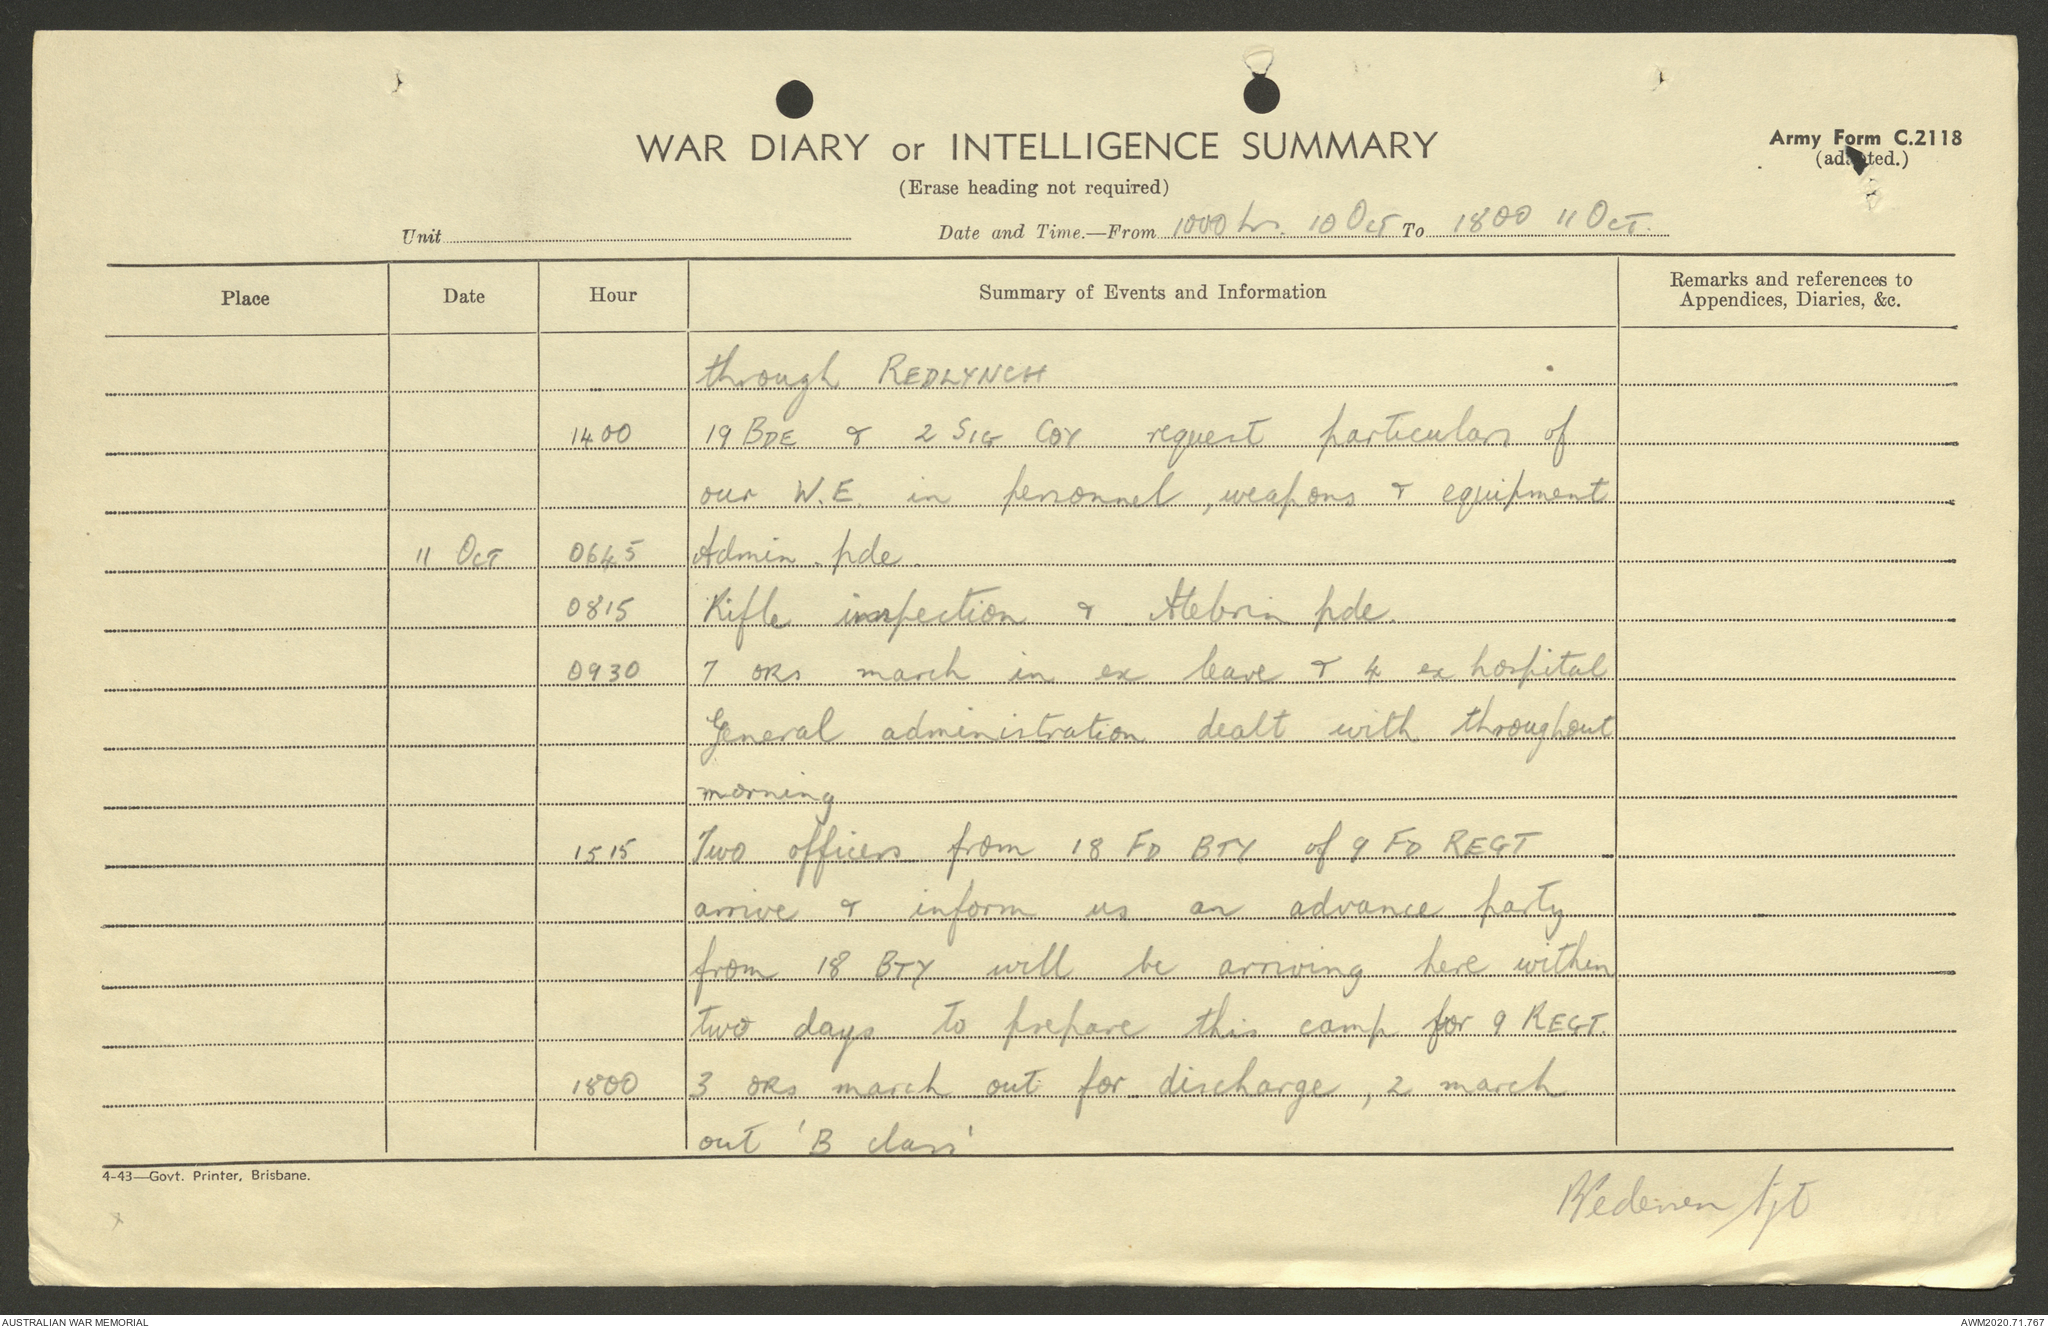 WAR DIARY or INTELLIGENCE SUMMARY
Army Form C.2118
(adapted.)
(Erase heading not required)
Unit Date and Time.—From 1000 hrs. 10 Oct To 1800 11 Oct.
Place Date Hour Summary of Events and Information Remarks and references to
Appendices, Diaries, &c.
through REDLYNCH
1400 19 BDE & 2 SIG COY request particulars of
our W.E. in personnel, weapons & equipment
11 Oct 0645 Admin. pde.
0815 Rifle inspection & Atebrin pde.
0930 7 ORs march in ex leave & 4 ex hospital
General administration dealt with throughout
morning
1515 Two officers from 18 FD BTY of 9 FD REGT
arrive & inform us an advance party
from 18 BTY will be arriving here within
two days to prepare this camp for 9 REGT.
1800 3 ORs march out for discharge, 2 march
out 'B class'
4-43—Govt. Printer, Brisbane.
Sjt
AUSTRALIAN WAR MEMORIAL
AWM2020.71.767